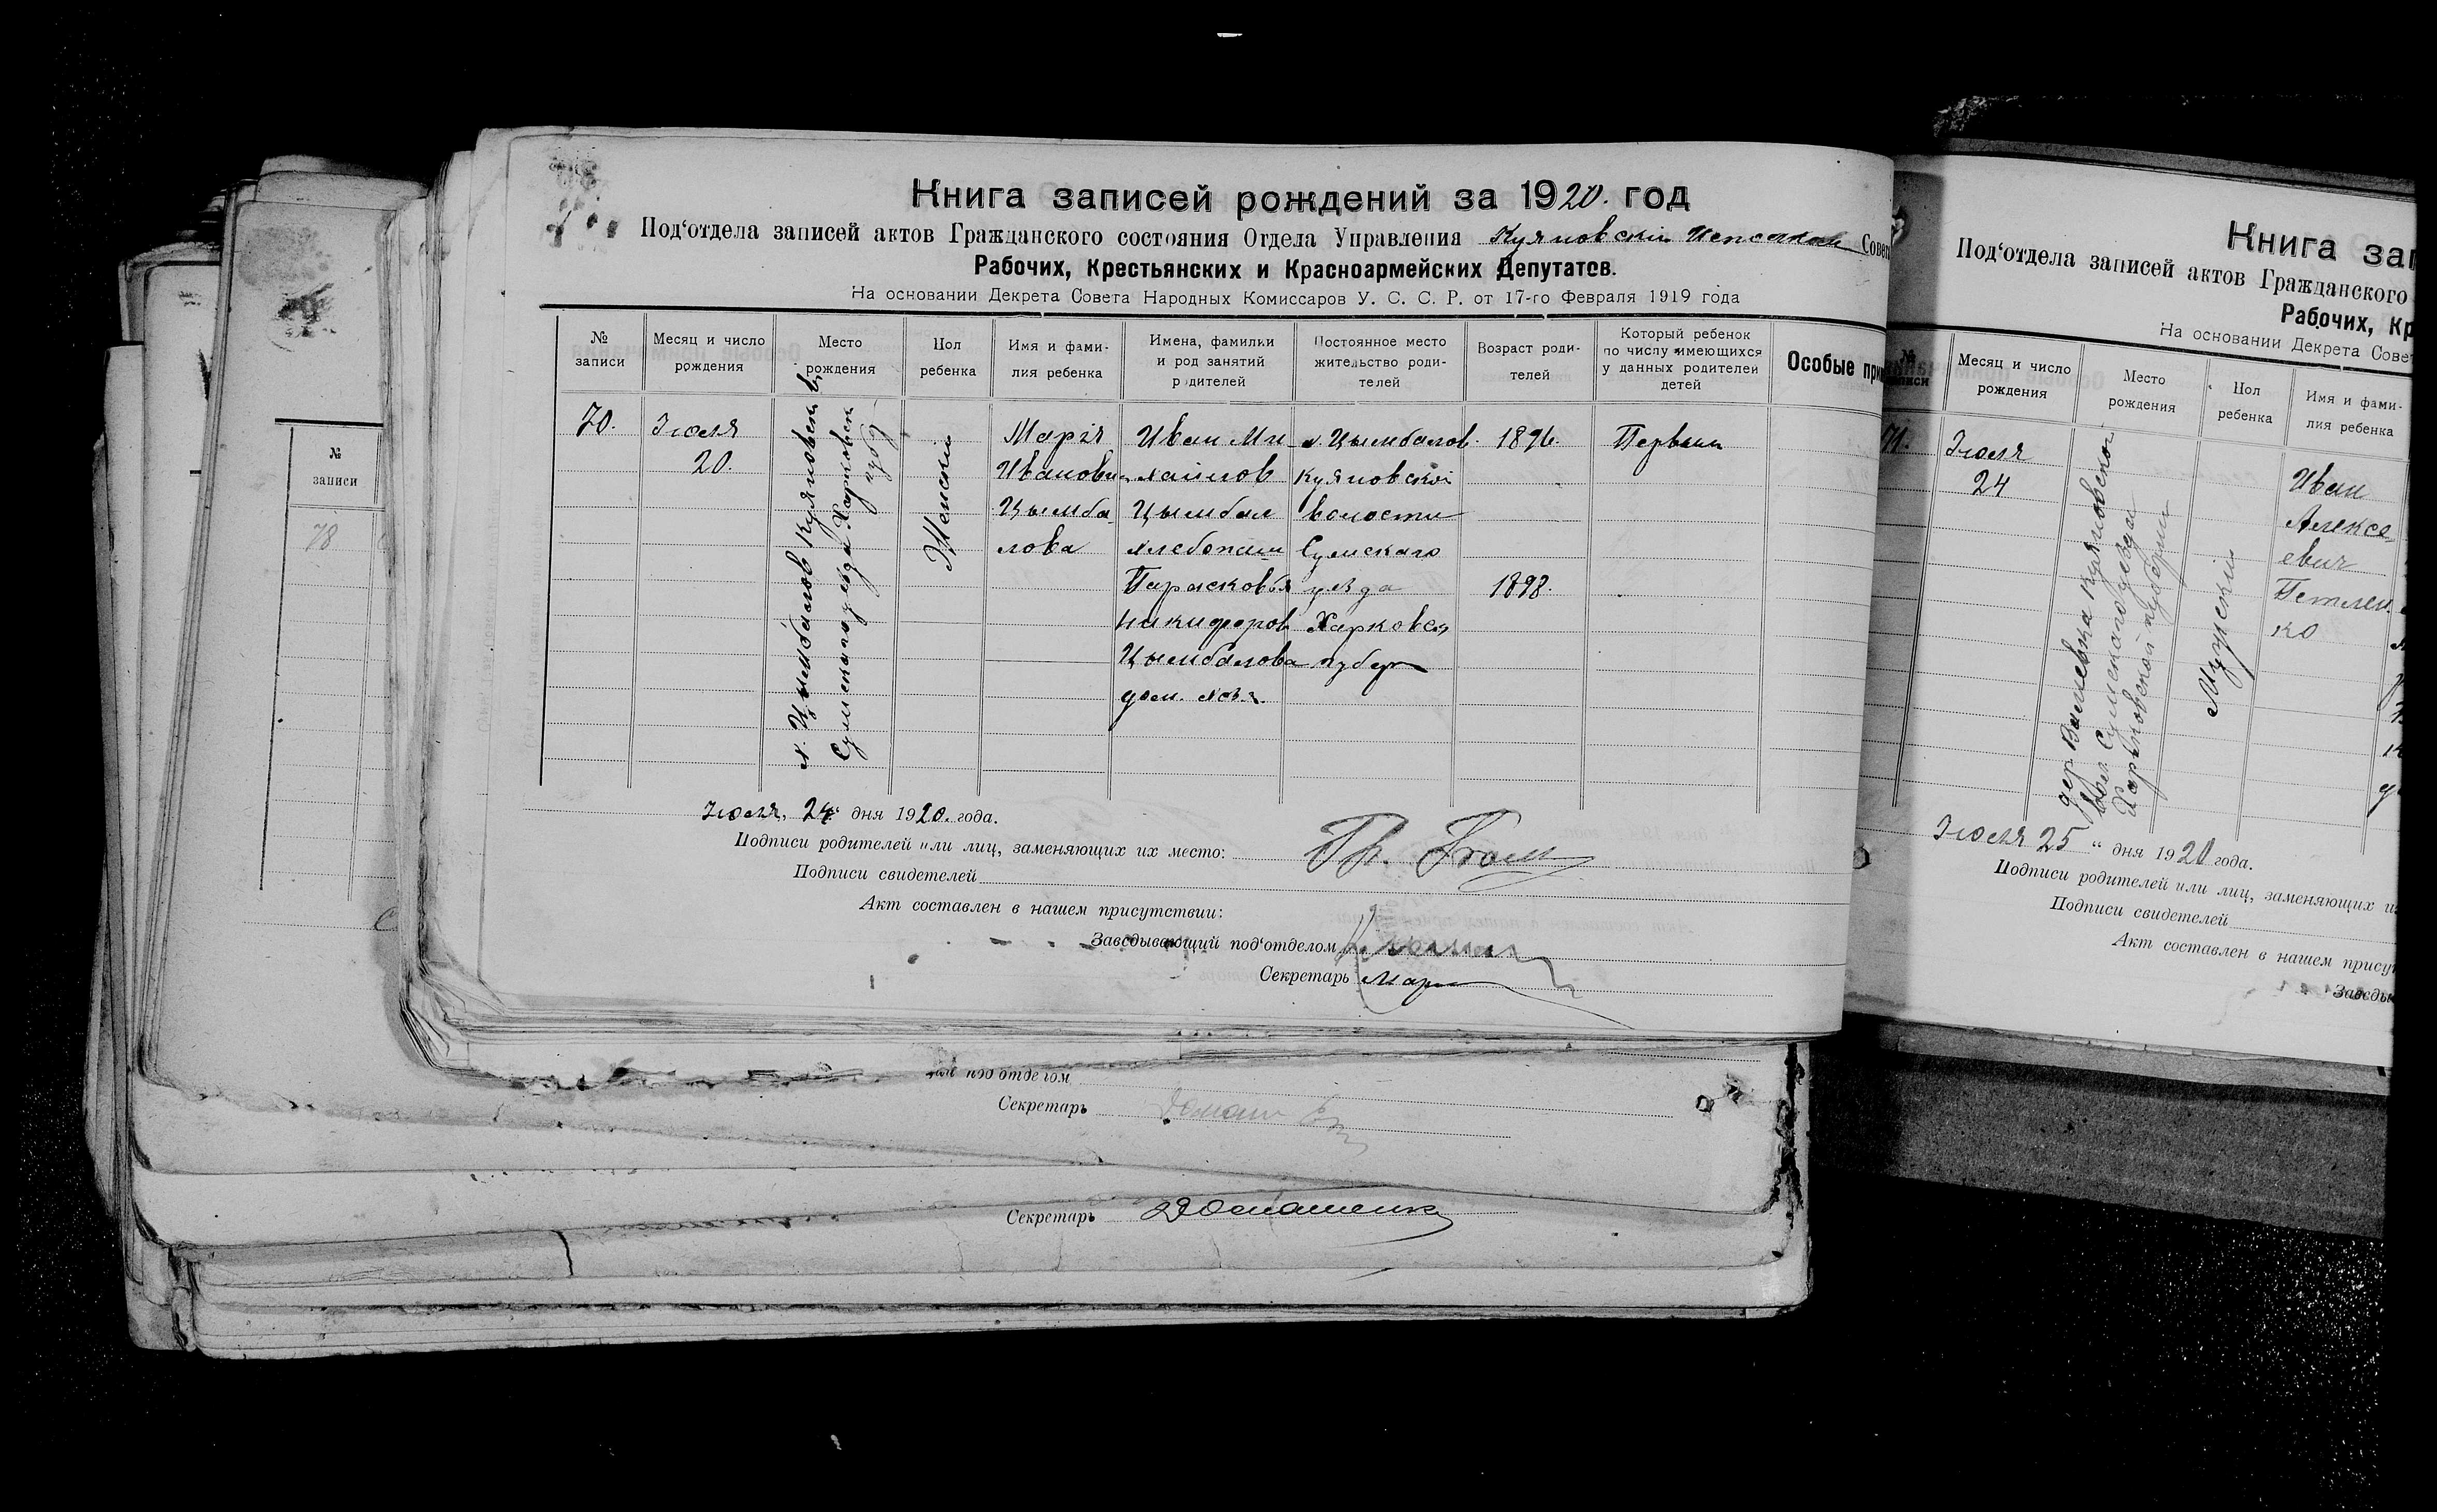 Книга записей рождений за 1920. год
Под‘отдела записей актов Гражданского состояния Отдела Управления Куяновскій Совет
Рабочих, Крестьянских и Красноармейских Депутатов.
На основании Декрета Совета Народных Комиссаров У. С. С. Р. от 17-го Февраля 1919 года
№ записи
Месяц и число рождения
Место рождения
Пол ребенка
Имя и фами-
лия ребенка
Имена, фамилии
и род занятий
родителей
Постоянное место
жительство роди-
телей
Возраст роди-
телей
Который ребенок
по числу имеющихся
у данных родителей
детей
Особые при
70.
Іюля
20.
х. Цымбалов Куяновск. в.
Сумскаго уезда Харковск
губ.
Женскій
Марія
Иванов
Цымба
лова
Иван Ми
хаилов
Цымбал
хлебопаш
Парасковья
Никифоров
Цымбалова
дом. хоз.
х. Цымбалов
Куяновской
волости
Сумскаго
уезда
Харковск
губер
1896.
1898.
Первый
Іюля, 24 “ дня 1920. года.
Подписи родителей или лиц, заменяющих их место:
Подписи свидетелей
Акт составлен в нашем присутствии:
Заведывающий под‘отделом
Секретарь
Книга зап
Под‘отдела записей актов Гражданского
Рабочих, Кр
На основании Декрета Совет
№ записи
Месяц и число
рождения
Место
рождения
Пол
ребенка
Имя и фами-
лия ребенка
71.
Іюля
24
дер Куяновской
вол. Сумского уезда
Харьковской губерни
Мужскій
Иван
Алексе
евич
Петлен
ко
Іюля 25 “ дня 1920 года.
Подписи родителей или лиц, заменяющих и
Подписи свидетелей
Акт составлен в нашем присут
Заведы
№
записи
78
под отделом
Секретарь
Секретарь Домашенко